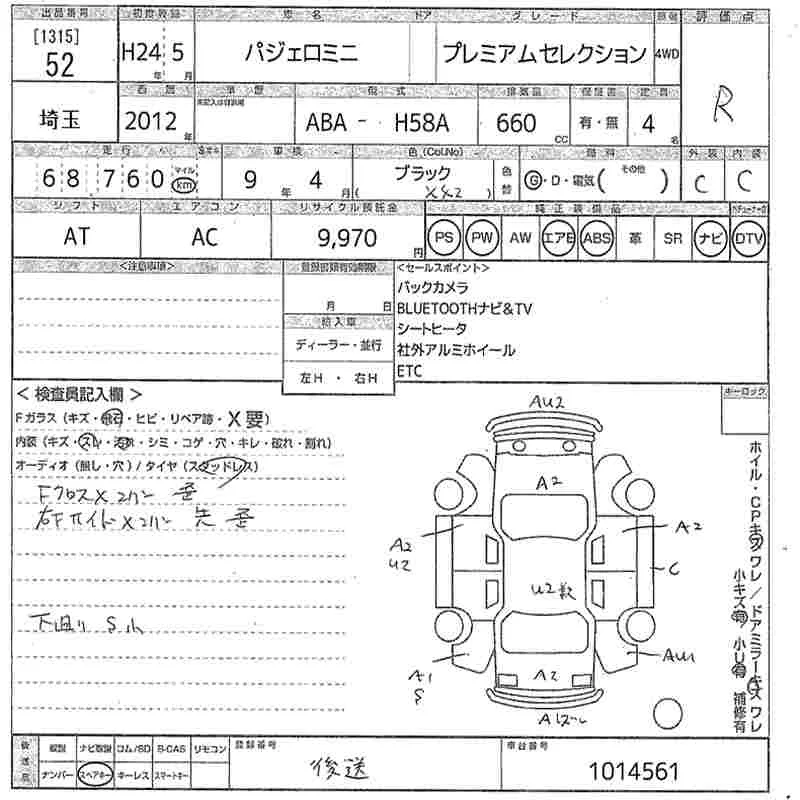 出品番号 初度登録 車名 ドア グレード 評価点
[1315]
52
H24 年 5 月
パジェロミニ
プレミアムセレクション
4WD
R
埼玉
西暦 車歴 型式 排気量 保証書 定員
2012 年
ABA - H58A
660 CC
有・無
4 名
走行 車検 色(Col.No) 燃料 外装 内装
68,760 マイル km
9 年 4 月
ブラック
( X42 )
G・D・電気( その他 )
C
C
シフト エアコン リサイクル預託金 純正装備品
AT
AC
9,970 円
PS PW AW エアB ABS 革 SR ナビ DTV
<注意事項> 登録書類有効期限 <セールスポイント>
月 日
バックカメラ
BLUETOOTHナビ&TV
シートヒータ
社外アルミホイール
ETC
輸入車
ディーラー・並行
左H ・ 右H
キーロック
< 検査員記入欄 >
Fガラス (キズ・飛石・ヒビ・リペア跡・X要)
内装 (キズ・スレ・汚れ・シミ・コゲ・穴・キレ・破れ・割れ)
オーディオ (無し・穴) / タイヤ (スタッドレス)
FクロスXコアハ 歪
右FサイドXコアハ 先 歪
下廻り S小
AU2
A2
A2
U2
A2
C
U2数
A1
S
A2
AU1
ホイル・CPキズワレ/ドアミラーキズワレ
小キズ有/小U有 補修有
後送品
取説 ナビ取説 コム/SD B-CAS リモコン
ナンバー スペアキー キーレス スマートキー
登録番号
後送
車台番号
1014561